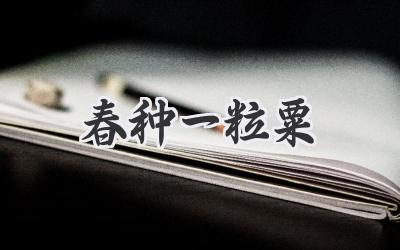 春种一粒粟